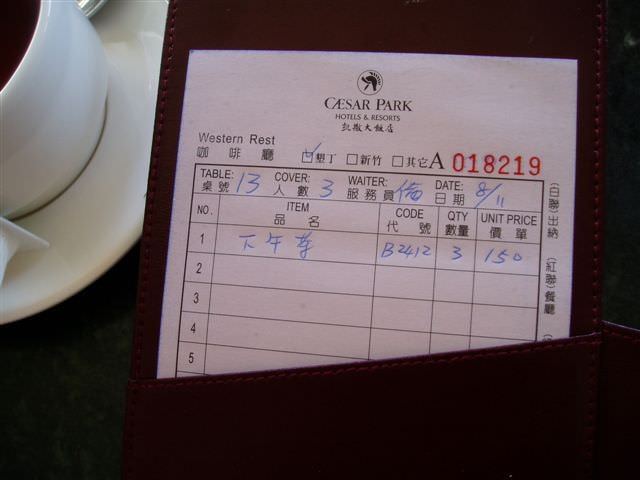 CÆSAR PARK
HOTELS & RESORTS
凱撒大飯店
Western Rest
咖啡廳 ☑墾丁 □新竹 □其它A 018219
TABLE: 13 COVER: 3 WAITER: DATE: 8/11
桌號 人數 服務員 日期
NO. ITEM CODE QTY UNIT PRICE
品名 代號 數量 價單
1 下午茶 B2412 3 150
2
3
4
5
(白聯)出納
(紅聯)餐廳